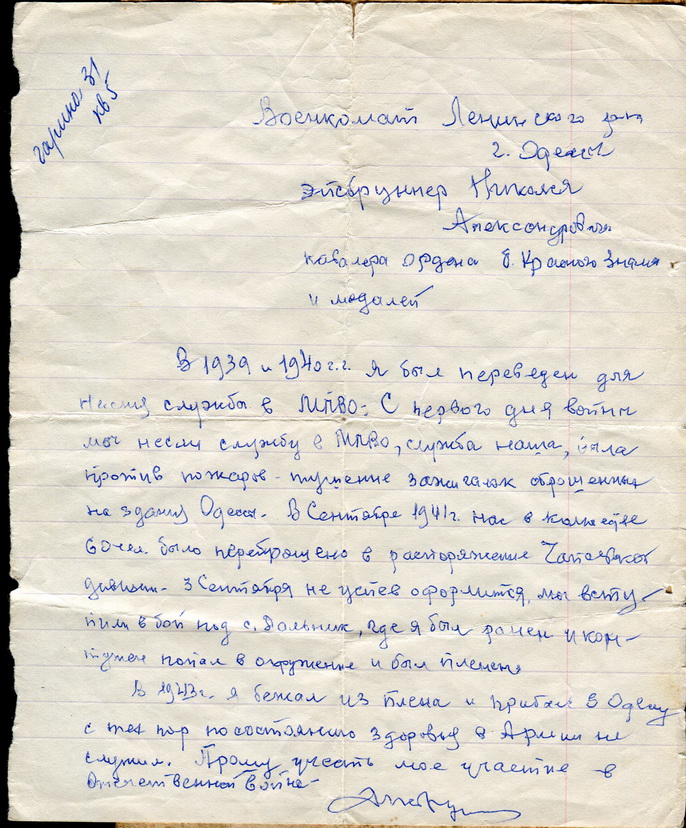 гарина 31
кв 5
Военкомат Ленинского р-на
г. Одессы
Эйсбруннер Николая
Александровича
кавалера ордена б. Красного Знамя
и медалей
В 1939 и 1940 г.г. я был переведен для
несния службы в МПВО. С первого дня войны
мы несли службу в МПВО, служба наша, была
против пожаров - тушение зажигалок сброшенных
на здания Одессы. В Сентябре 1941 г. нас в количестве
60 чел. было переброшено в распоряжение Чапаевской
дивизии. 3 Сентября не успев оформится, мы всту-
пили в бой под с. Дальник, где я был ранен и кон-
тужен попал в окружение и был пленен.
В 1943 г. я бежал из плена и прибыл в Одессу
с тех пор по состоянию здоровья в Армии не
служил. Прошу учесть мое участие в
Отечественной Войне-